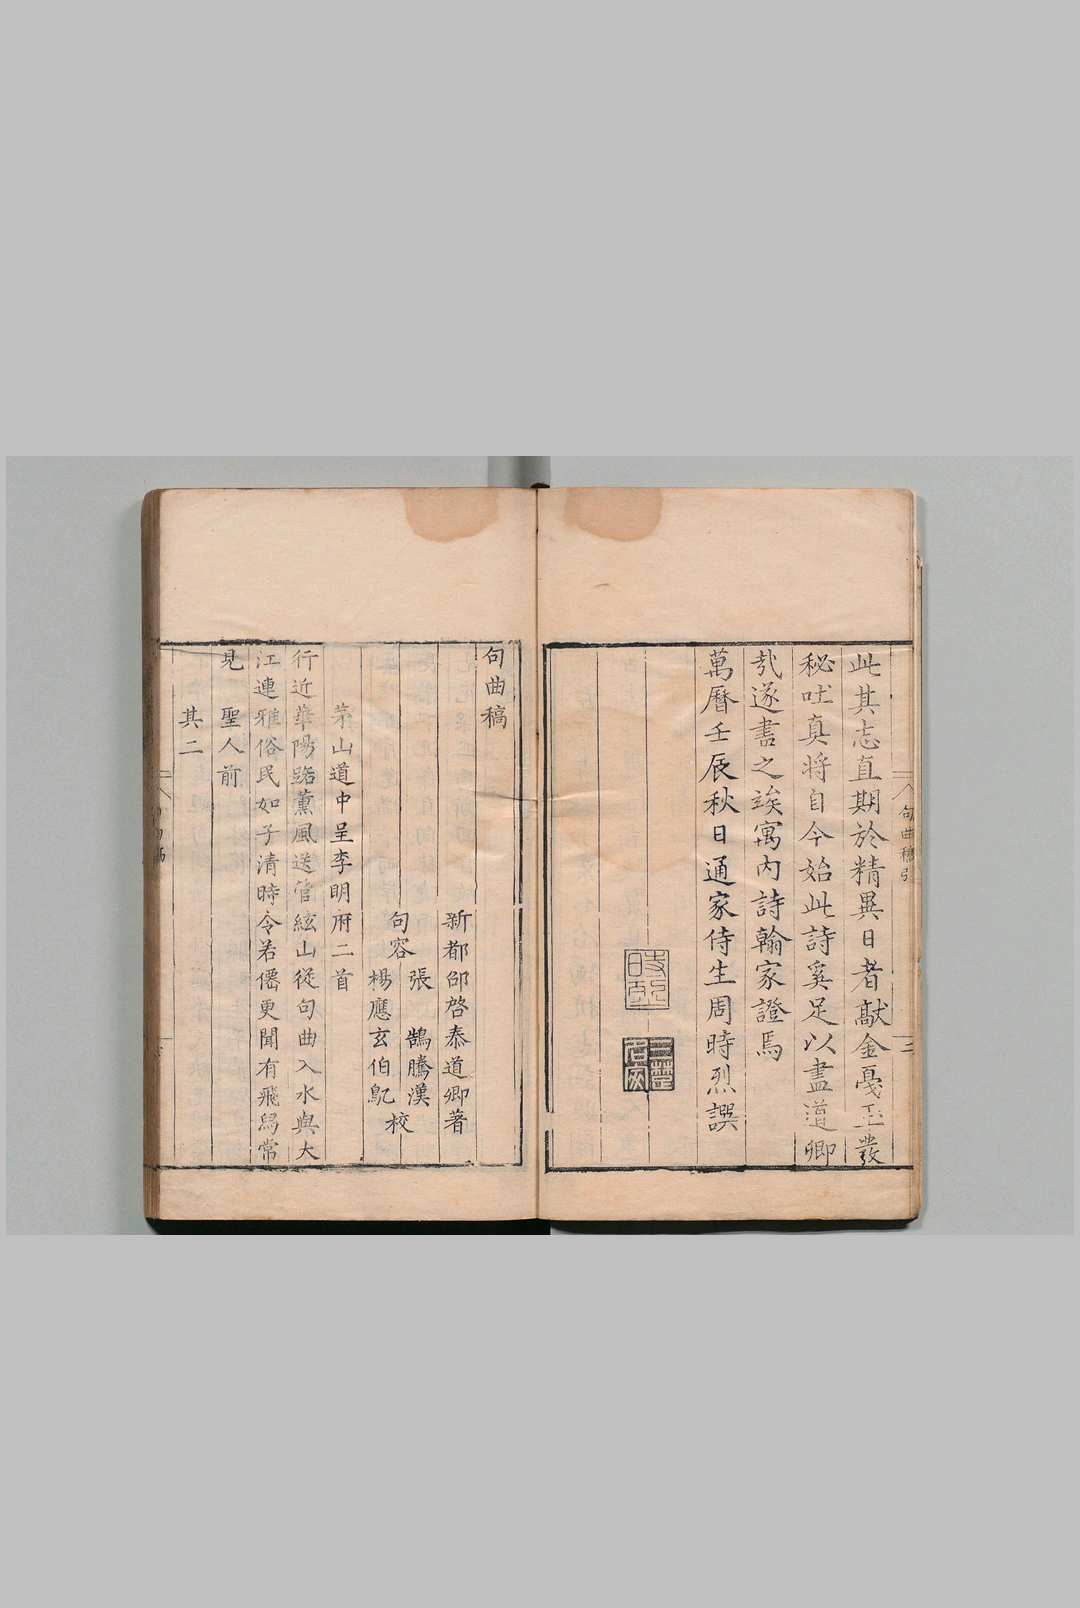 此其志直期於精異日者獻金戛玉叢
秘吐真將自今始此詩奚足以盡道卿
㢤遂書之竢寓内詩翰家證焉
萬曆壬辰秋日通家侍生周時烈譔
句曲稿
新都邵啓泰道卿著
句容
張鵠騰漢
楊應玄伯
校
茅山道中呈李明府二首
行近華陽路薰風送管絃山從句曲入水與大
江連雅俗民如子清時令若僊更聞有飛舄常
見聖人前
其二